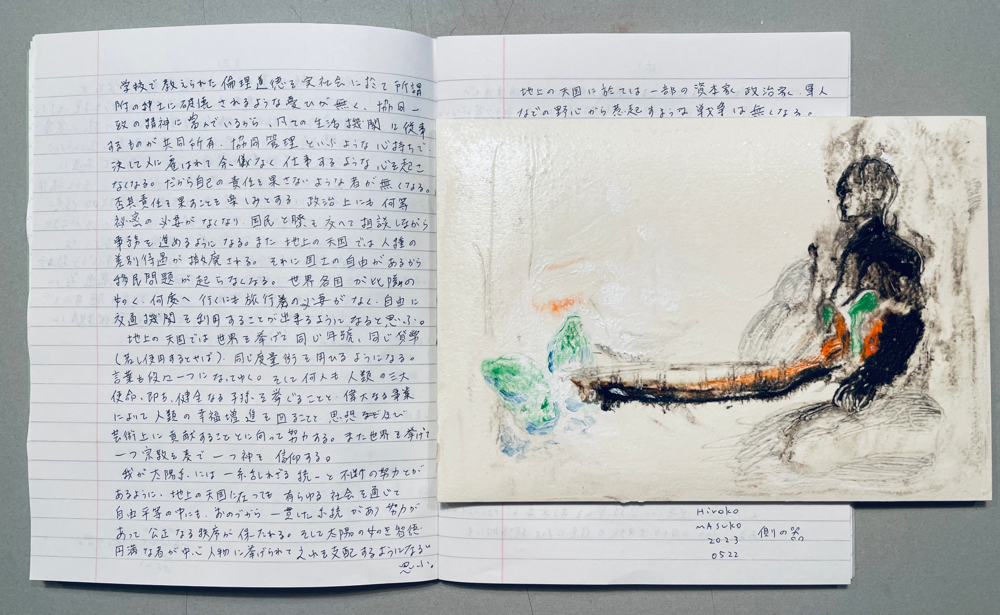 学校で教えられた倫理道徳を実社会に於て所謂
所の紳士に破流されるような憂ひが無く、協同一
致の精神に富んでいるから、凡ての生活機関は従事
するものが共同所有、協同管理といふような心持ちで
決して人に雇はれて余儀なく仕事するような心を起さ
なくなる。だから自己の責任を果さないような者が無くなる。
否其責任を果すことを楽しみとする。政治上にも何等
秘密の必要がなくなり、国民と膝を交へて相談しながら
事務を進めるようになる。また地上の天国では人種の
差別待遇が撤廃される。それに国土の自由があるから
移民問題が起らなくなる。世界各国が比隣の
如く、何處へ行くにも旅行券の必要がなく、自由に
交通機関を利用することが出来るようになると思ふ。
地上の天国では世界を挙げて同じ年號、同じ貨幣
(若し使用するとせば)同じ度量衡を用ひるようになる。
言葉も後に一つになってゆく。そして何人も人類の三大
使命、即ち、健全なる子孫を挙ぐることと、偉大なる事業
によって人類の幸福増進を図ることと 思想など及び
芸術上に貢献することとに向って努力する。また世界を挙げて
一つ宗教を奏で一つ神を信仰する。
我が太陽系には一糸乱れざる統一と不断の努力とが
あるように、地上の天国に在っても有らゆる社会を通じて
自由平等の中にも、おのづから一貫した系統があり努力が
あって公正なる秩序が保たれる。そして太陽の如き智徳
円満な者が中心人物に挙げられて之れを支配するようになると
思ふ。
地上の天国に於ては一部の資本家、政治家、軍人
などの野心から惹起するような戦争は無くなる。
Hiroko
MASUKO
2023
0522
側の器